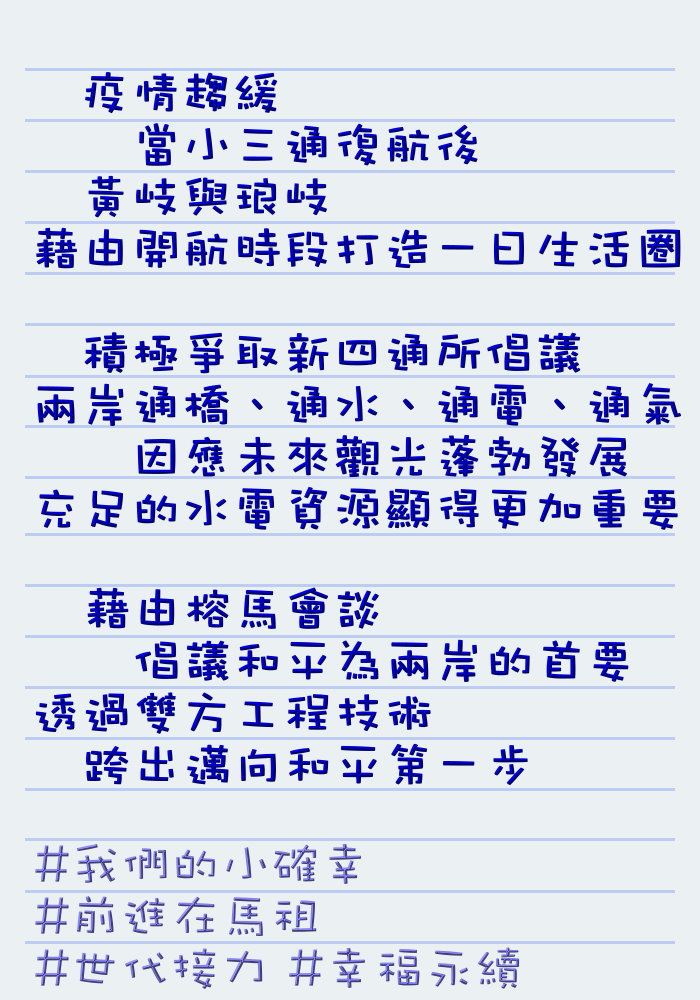 疫情趨緩
當小三通復航後
黃岐與琅岐
藉由開航時段打造一日生活圈
積極爭取新四通所倡議
兩岸通橋、通水、通電、通氣
因應未來觀光蓬勃發展
充足的水電資源顯得更加重要
藉由榕馬會談
倡議和平為兩岸的首要
透過雙方工程技術
跨出邁向和平第一步
#我們的小確幸
#前進在馬祖
#世代接力 #幸福永續